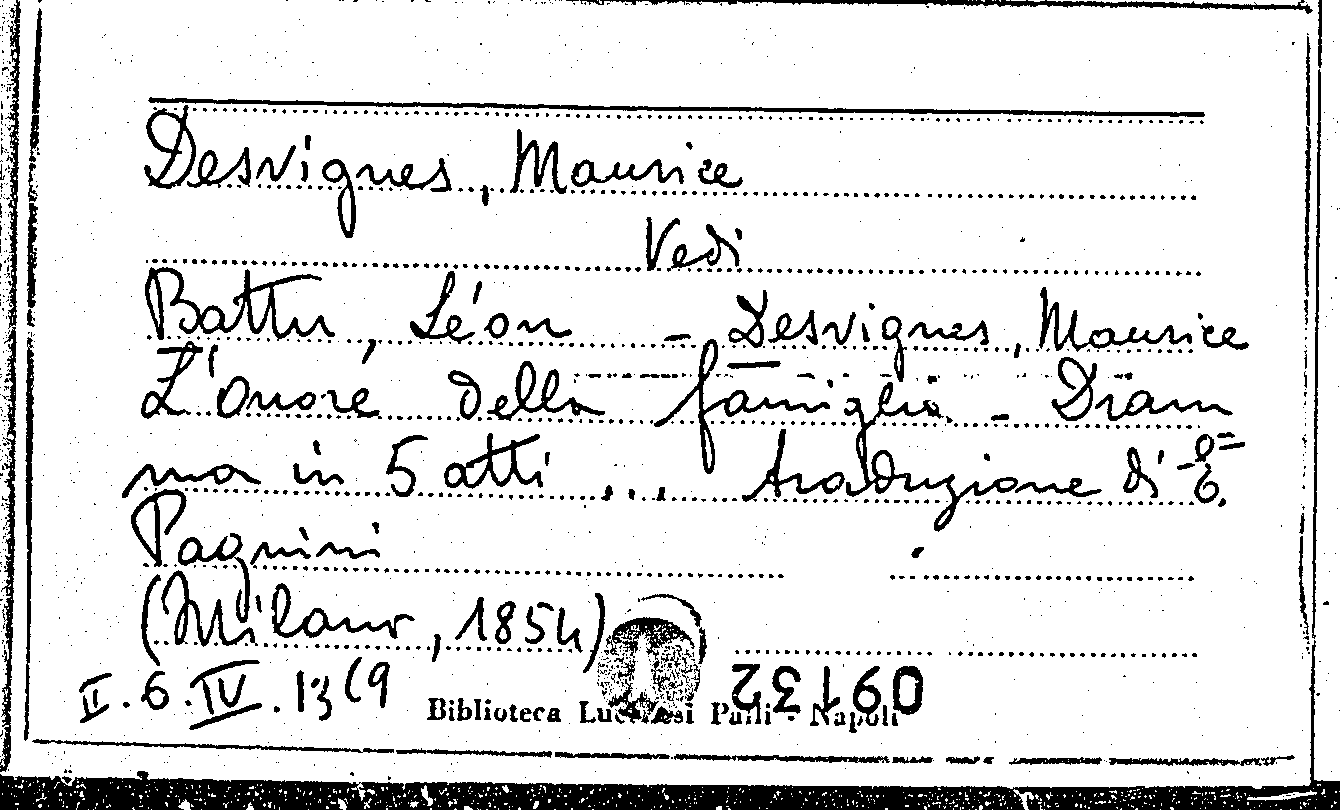 Desvignes, Maurice
Vedi
Battu, Léon - Desvignes, Maurice
L'onore della famiglia - Dram
ma in 5 atti ... traduzione di E.
Pagnini
(Milano, 1854)
II.6.IV.13(9
Biblioteca Lucchesi Palli - Napoli
09132